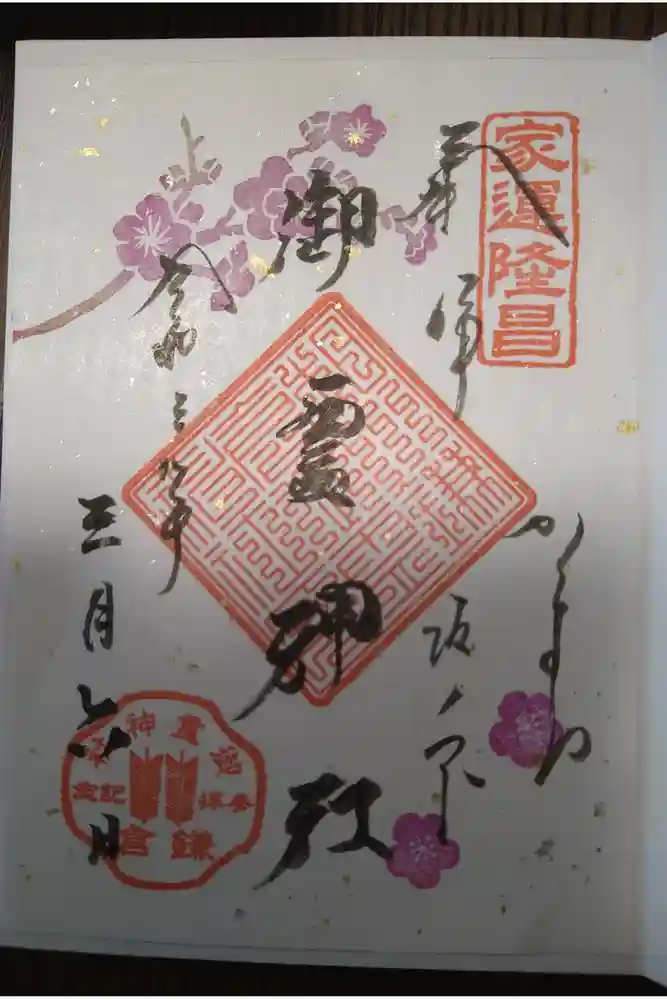 家運隆昌
かまくら
奉拝
坂ノ下
御霊神社
令和三年
三月六日
御霊神社
参拝記念
鎌倉